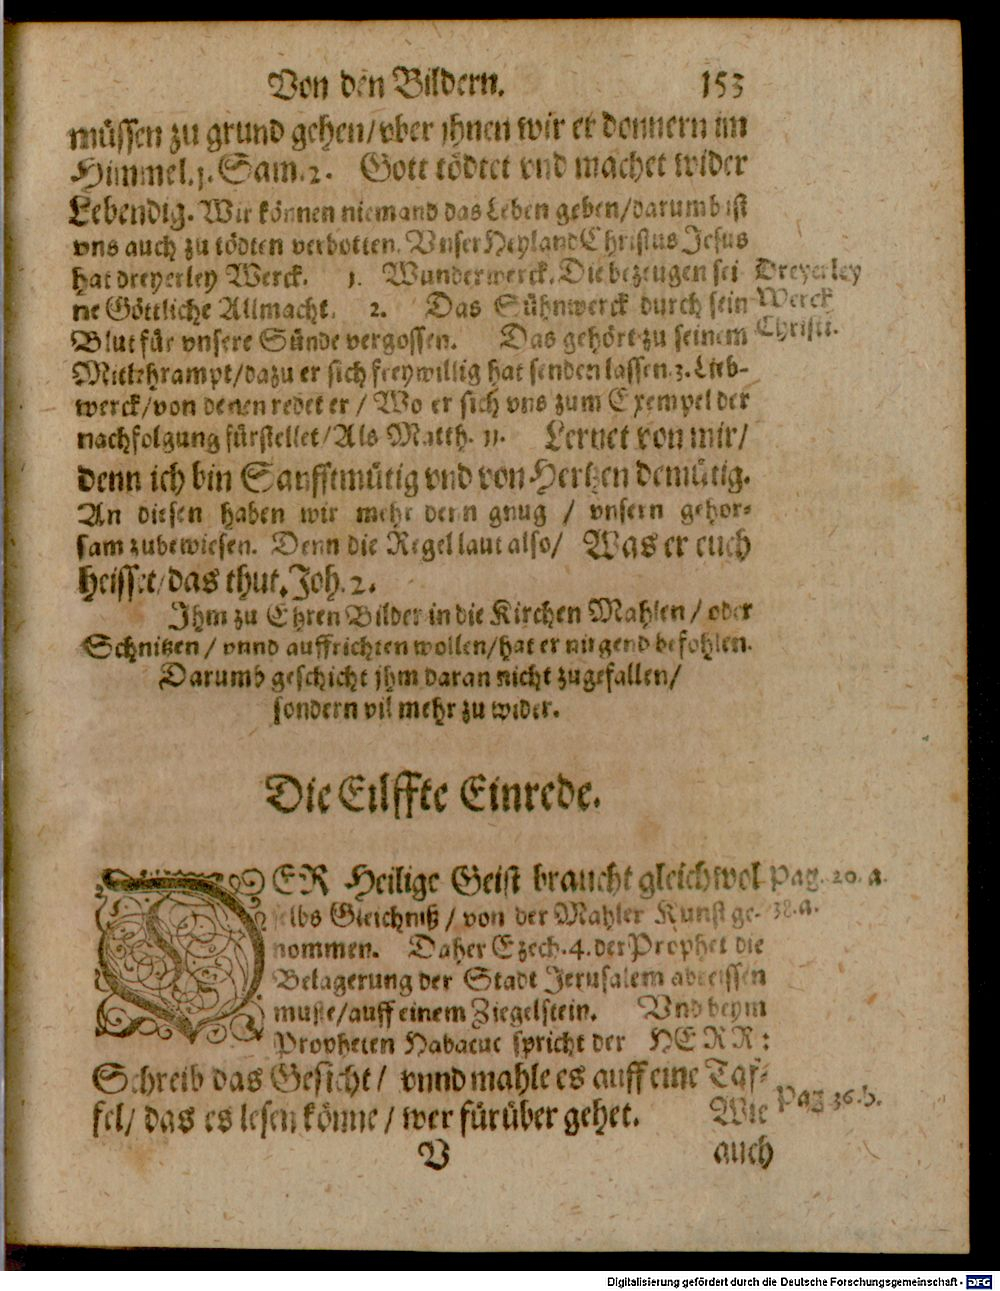 Von den Bildern. 153
müssen zu grund gehen/vber jhnen wir er donnern im
Himmel. 1. Sam. 2. Gott tödtet vnd machet wider
Lebendig. Wir können niemand das Leben geben/darumb ist
vns auch zu tödten verbotten. Vnser Heyland Christus Jesus
hat dreyerley Werck. 1. Wunderwerck. Die bezeugen sei
ne Göttliche Allmacht. 2. Das Sühnwerck durch sein
Blut für vnsere Sünde vergossen. Das gehört zu seinem
Mitlehrampt/dazu er sich freywillig hat senden lassen. 3. Lieb-
werck/von denen redet er / Wo er sich vns zum Exempel der
nachfolgung fürstellet/Als Matth. 11. Lernet von mir/
denn ich bin Sanfftmütig vnd von Hertzen demütig.
An diesen haben wir mehr denn gnug / vnsern gehor-
sam zubewiesen. Denn die Regel laut also/ Was er euch
heisset/das thut. Joh. 2.
Dreyerley
Werck
Christi.
Ihm zu Ehren Bilder in die Kirchen Mahlen / oder
Schnitzen / vnnd auffrichten wollen/hat er nirgend befohlen.
Darumb geschicht jhm daran nicht zugefallen/
sondern vil mehr zu wider.
Die Eilffte Einrede.
DER Heilige Geist braucht gleichwol
selbs Gleichniß / von der Mahler Kunst ge-
nommen. Daher Ezech. 4. der Prophet die
Belagerung der Stadt Jerusalem abreissen
muste/auff einem Ziegelstein. Vnd beym
Propheten Habacuc spricht der HERR:
Schreib das Gesicht/ vnnd mahle es auff eine Taf-
fel/ das es lesen könne / wer fürüber gehet. Wie
Pag. 20. a.
38. a.
Pag 36. b.
V auch
Digitalisierung gefördert durch die Deutsche Forschungsgemeinschaft - DFG